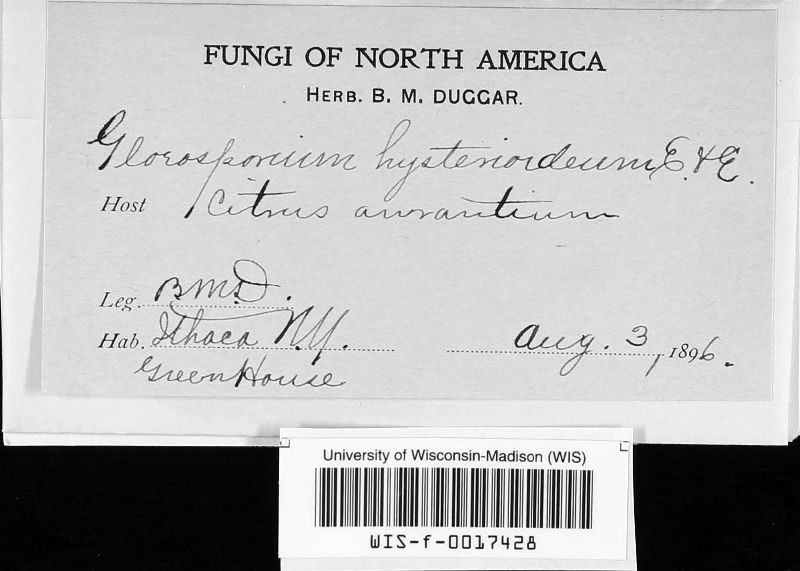 FUNGI OF NORTH AMERICA
HERB. B. M. DUGGAR.
Gloeosporium hysterioideum E. & E.
Host Citrus aurantium
Leg. B.M.D.
Hab. Ithaca N.Y. Aug. 3, 1896.
Green House
University of Wisconsin-Madison (WIS)
WIS-f-0017428